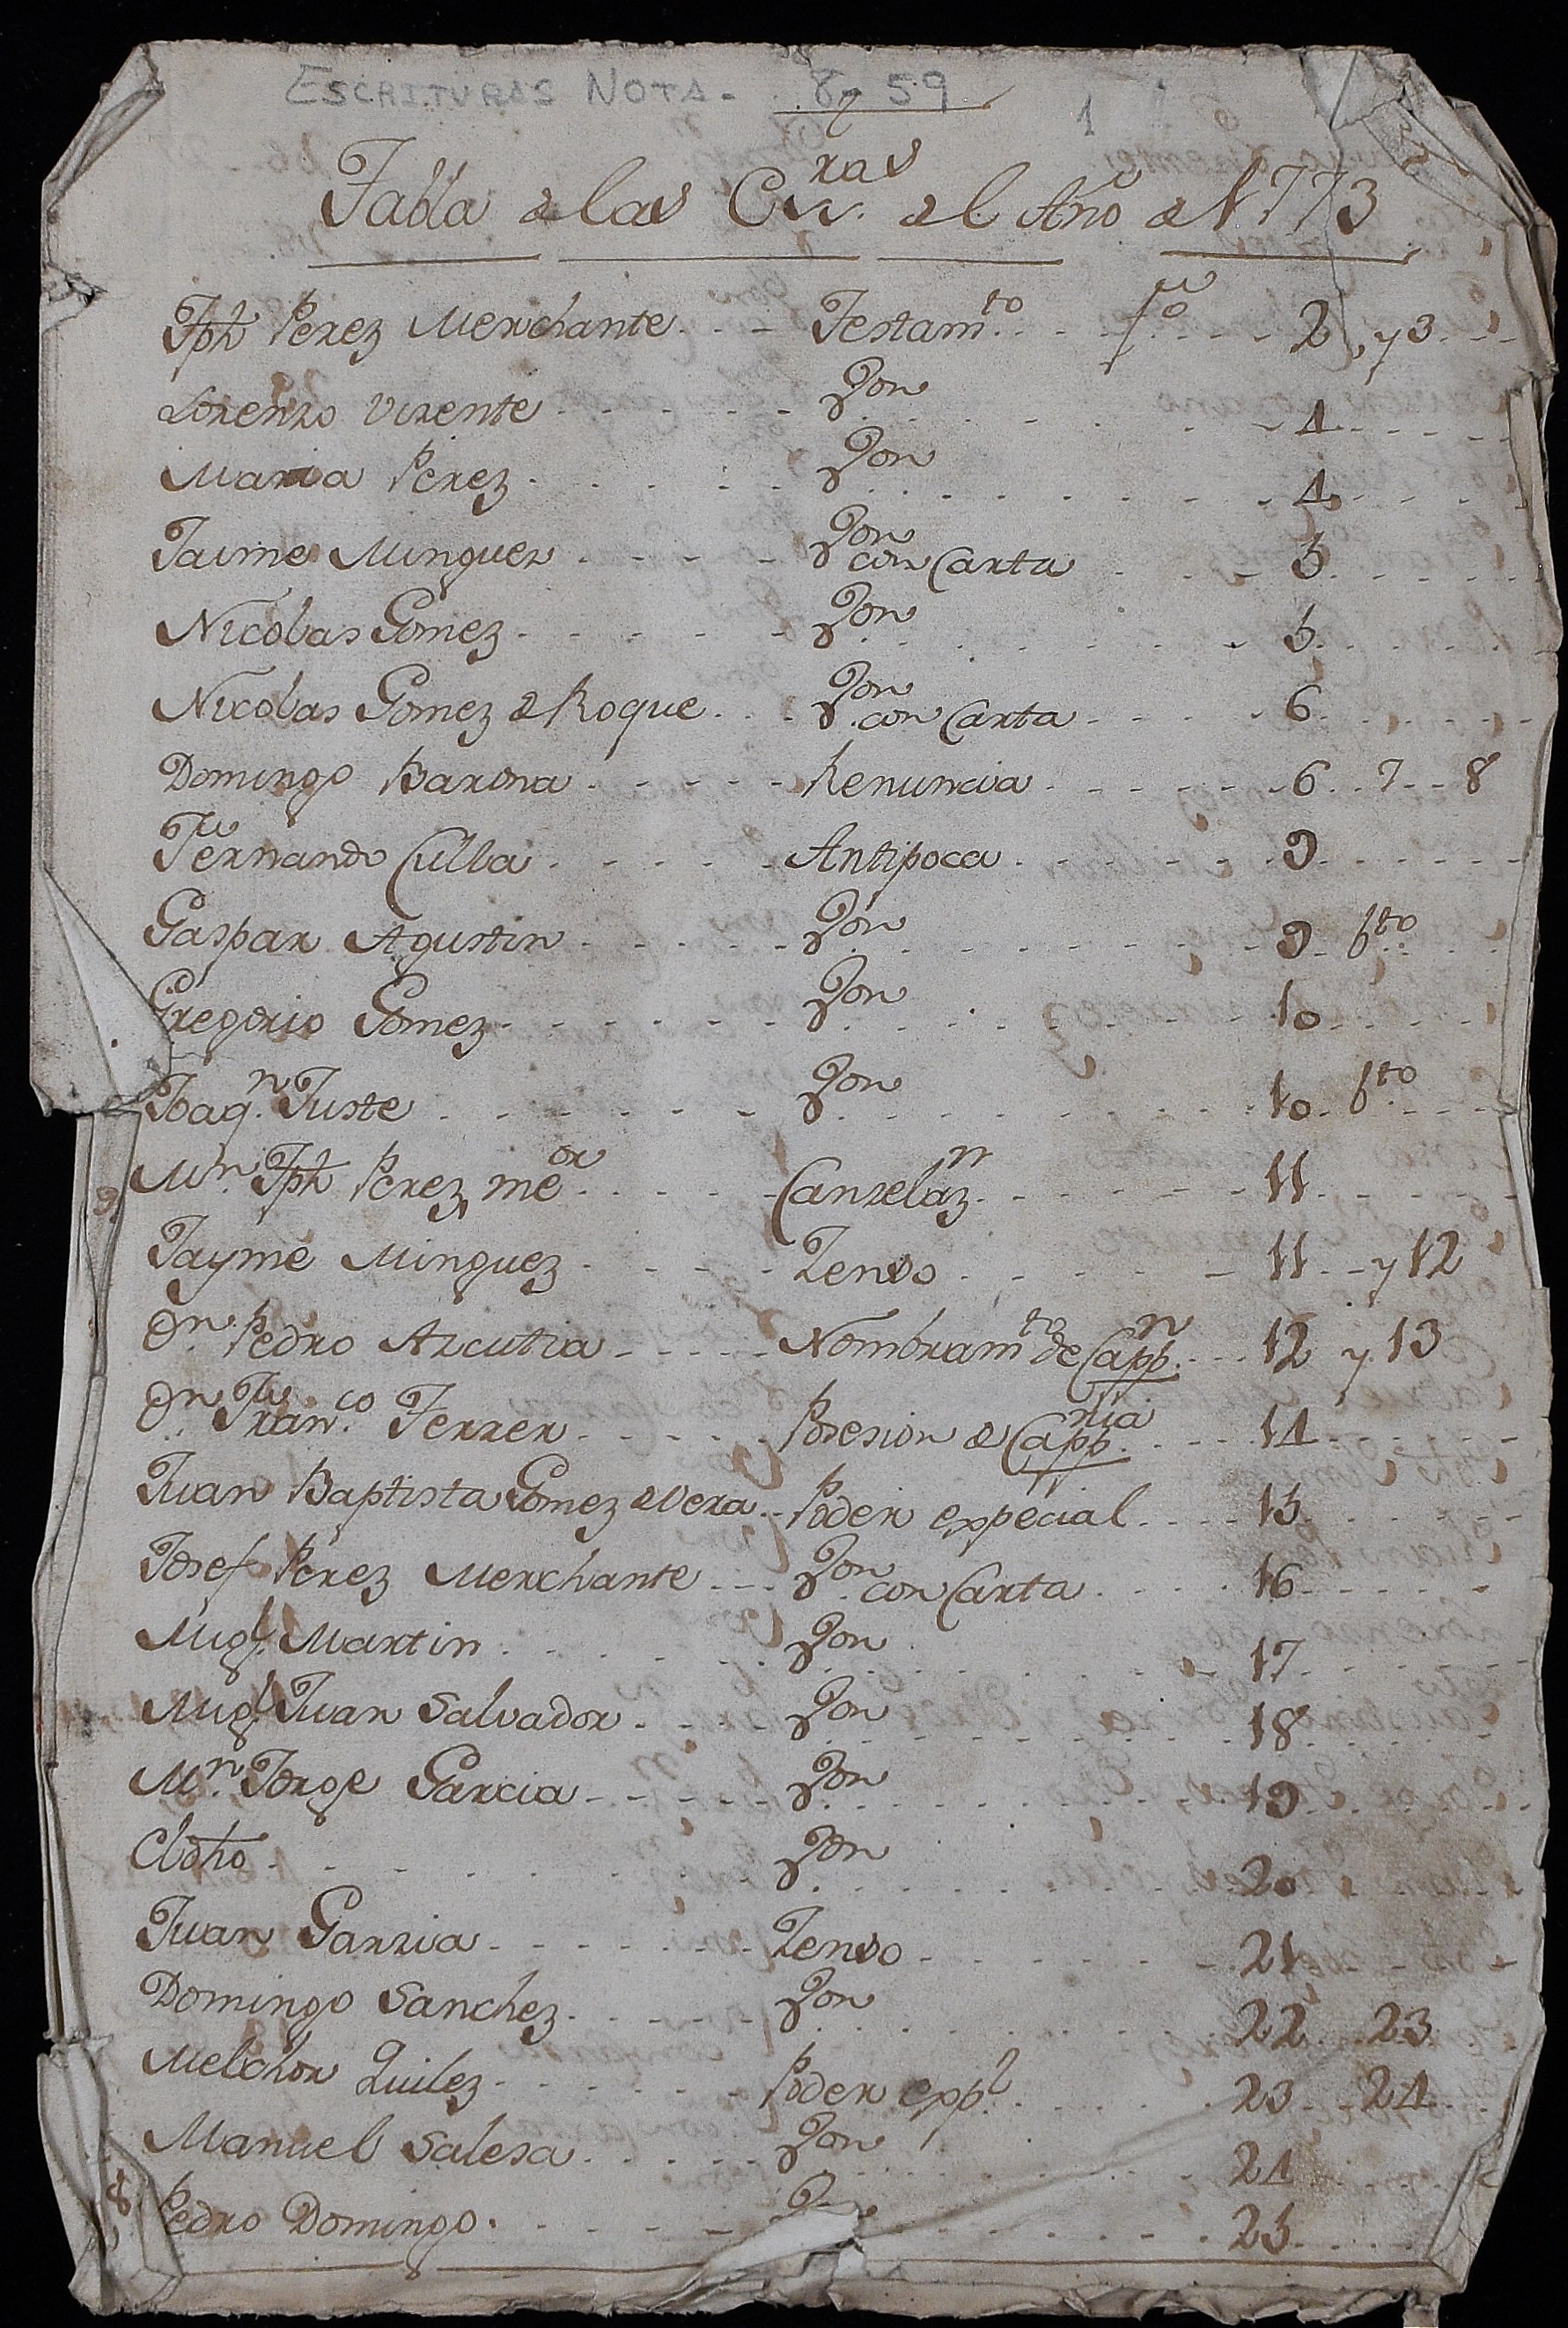 ESCRITURAS NOTA- 8-59 1
Tabla de las Es.ras del Año de 1773
Jph Perez Merchante - - Testam.to - - fo - - - 2, y 3 - -
Lorenzo Vizente - - - - - - Von - - - - 4 - - - -
Maria Perez - - - - - - Von - - - - 4 - - - -
Jaime Minguez - - - - - Von con Carta - - - 5 - - - -
Nicolas Gomez - - - - - - Von - - - - 5 - - - -
Nicolas Gomez de Roque - - - Von con Carta - - - - 6 - - - -
Domingo Barona - - - - - Renuncia - - - - - 6 - 7 - - 8
Fernando Culla - - - - - Antipoca - - - - - 9 - - - -
Gaspar Agustin - - - - - Von - - - - 9 - bto - -
Gregorio Gomez - - - - - - Von - - - - 10 - - - -
Joaq.n Juste - - - - - - Von - - - - 10 - bto - -
M.n Jph Perez, me.or - - - - - Canzelaz.n - - - - - 11 - - - -
Jayme Minguez - - - - - Zenso - - - - - 11 - - y 12
D.n Pedro Azcutia - - - - - Nombram.to de Capp.n - - - 12 y 13
D.n Fran.co Ferrer - - - - - Posesion de Capp.nia - - - 14 - - - -
Juan Baptista Gomez de Vera - - Poder expecial - - - - 15 - - - -
Josef Perez Merchante - - - Von con Carta - - - - 16 - - - -
Migl. Martin - - - - - - Von - - - - 17 - - - -
Migl. Juan Salvador - - - - Von - - - - 18 - - - -
M.n Jorge Garcia - - - - - Von - - - - 19 - - - -
El dho - - - - - - Von - - - - 20 - - - -
Juan Garzia - - - - - - Zenso - - - - - 21 - - - -
Domingo Sanchez - - - - - Von - - - - 22 - - 23 - -
Melchor Quilez - - - - - - Poder expp.l - - - - 23 - - 24 - -
Manuel Salesa - - - - - Von - - - - 24 - - - -
Pedro Domingo - - - - - - - - - - 25 - - - -